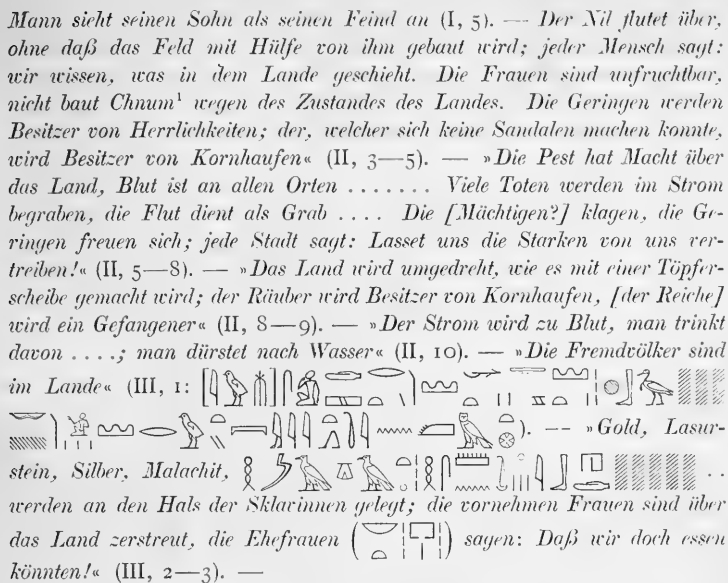 Mann sieht seinen Sohn als seinen Feind an (I, 5). — Der Nil flutet über,
ohne daß das Feld mit Hülfe von ihm gebaut wird; jeder Mensch sagt:
wir wissen, was in dem Lande geschieht. Die Frauen sind unfruchtbar,
nicht baut Chnum¹ wegen des Zustandes des Landes. Die Geringen werden
Besitzer von Herrlichkeiten; der, welcher sich keine Sandalen machen konnte,
wird Besitzer von Kornhaufen« (II, 3—5). — »Die Pest hat Macht über
das Land, Blut ist an allen Orten ....... Viele Toten werden im Strom
begraben, die Flut dient als Grab .... Die [Mächtigen?] klagen, die Ge-
ringen freuen sich; jede Stadt sagt: Lasset uns die Starken von uns ver-
treiben!« (II, 5—8). — »Das Land wird umgedreht, wie es mit einer Töpfer-
scheibe gemacht wird; der Räuber wird Besitzer von Kornhaufen, [der Reiche]
wird ein Gefangener« (II, 8—9). — »Der Strom wird zu Blut, man trinkt
davon ....; man dürstet nach Wasser« (II, 10). — »Die Fremdvölker sind
im Lande« (III, 1:
). — »Gold, Lasur-
stein, Silber, Malachit, ..
werden an den Hals der Sklavinnen gelegt; die vornehmen Frauen sind über
das Land zerstreut, die Ehefrauen ( ) sagen: Daß wir doch essen
könnten!« (III, 2—3). —